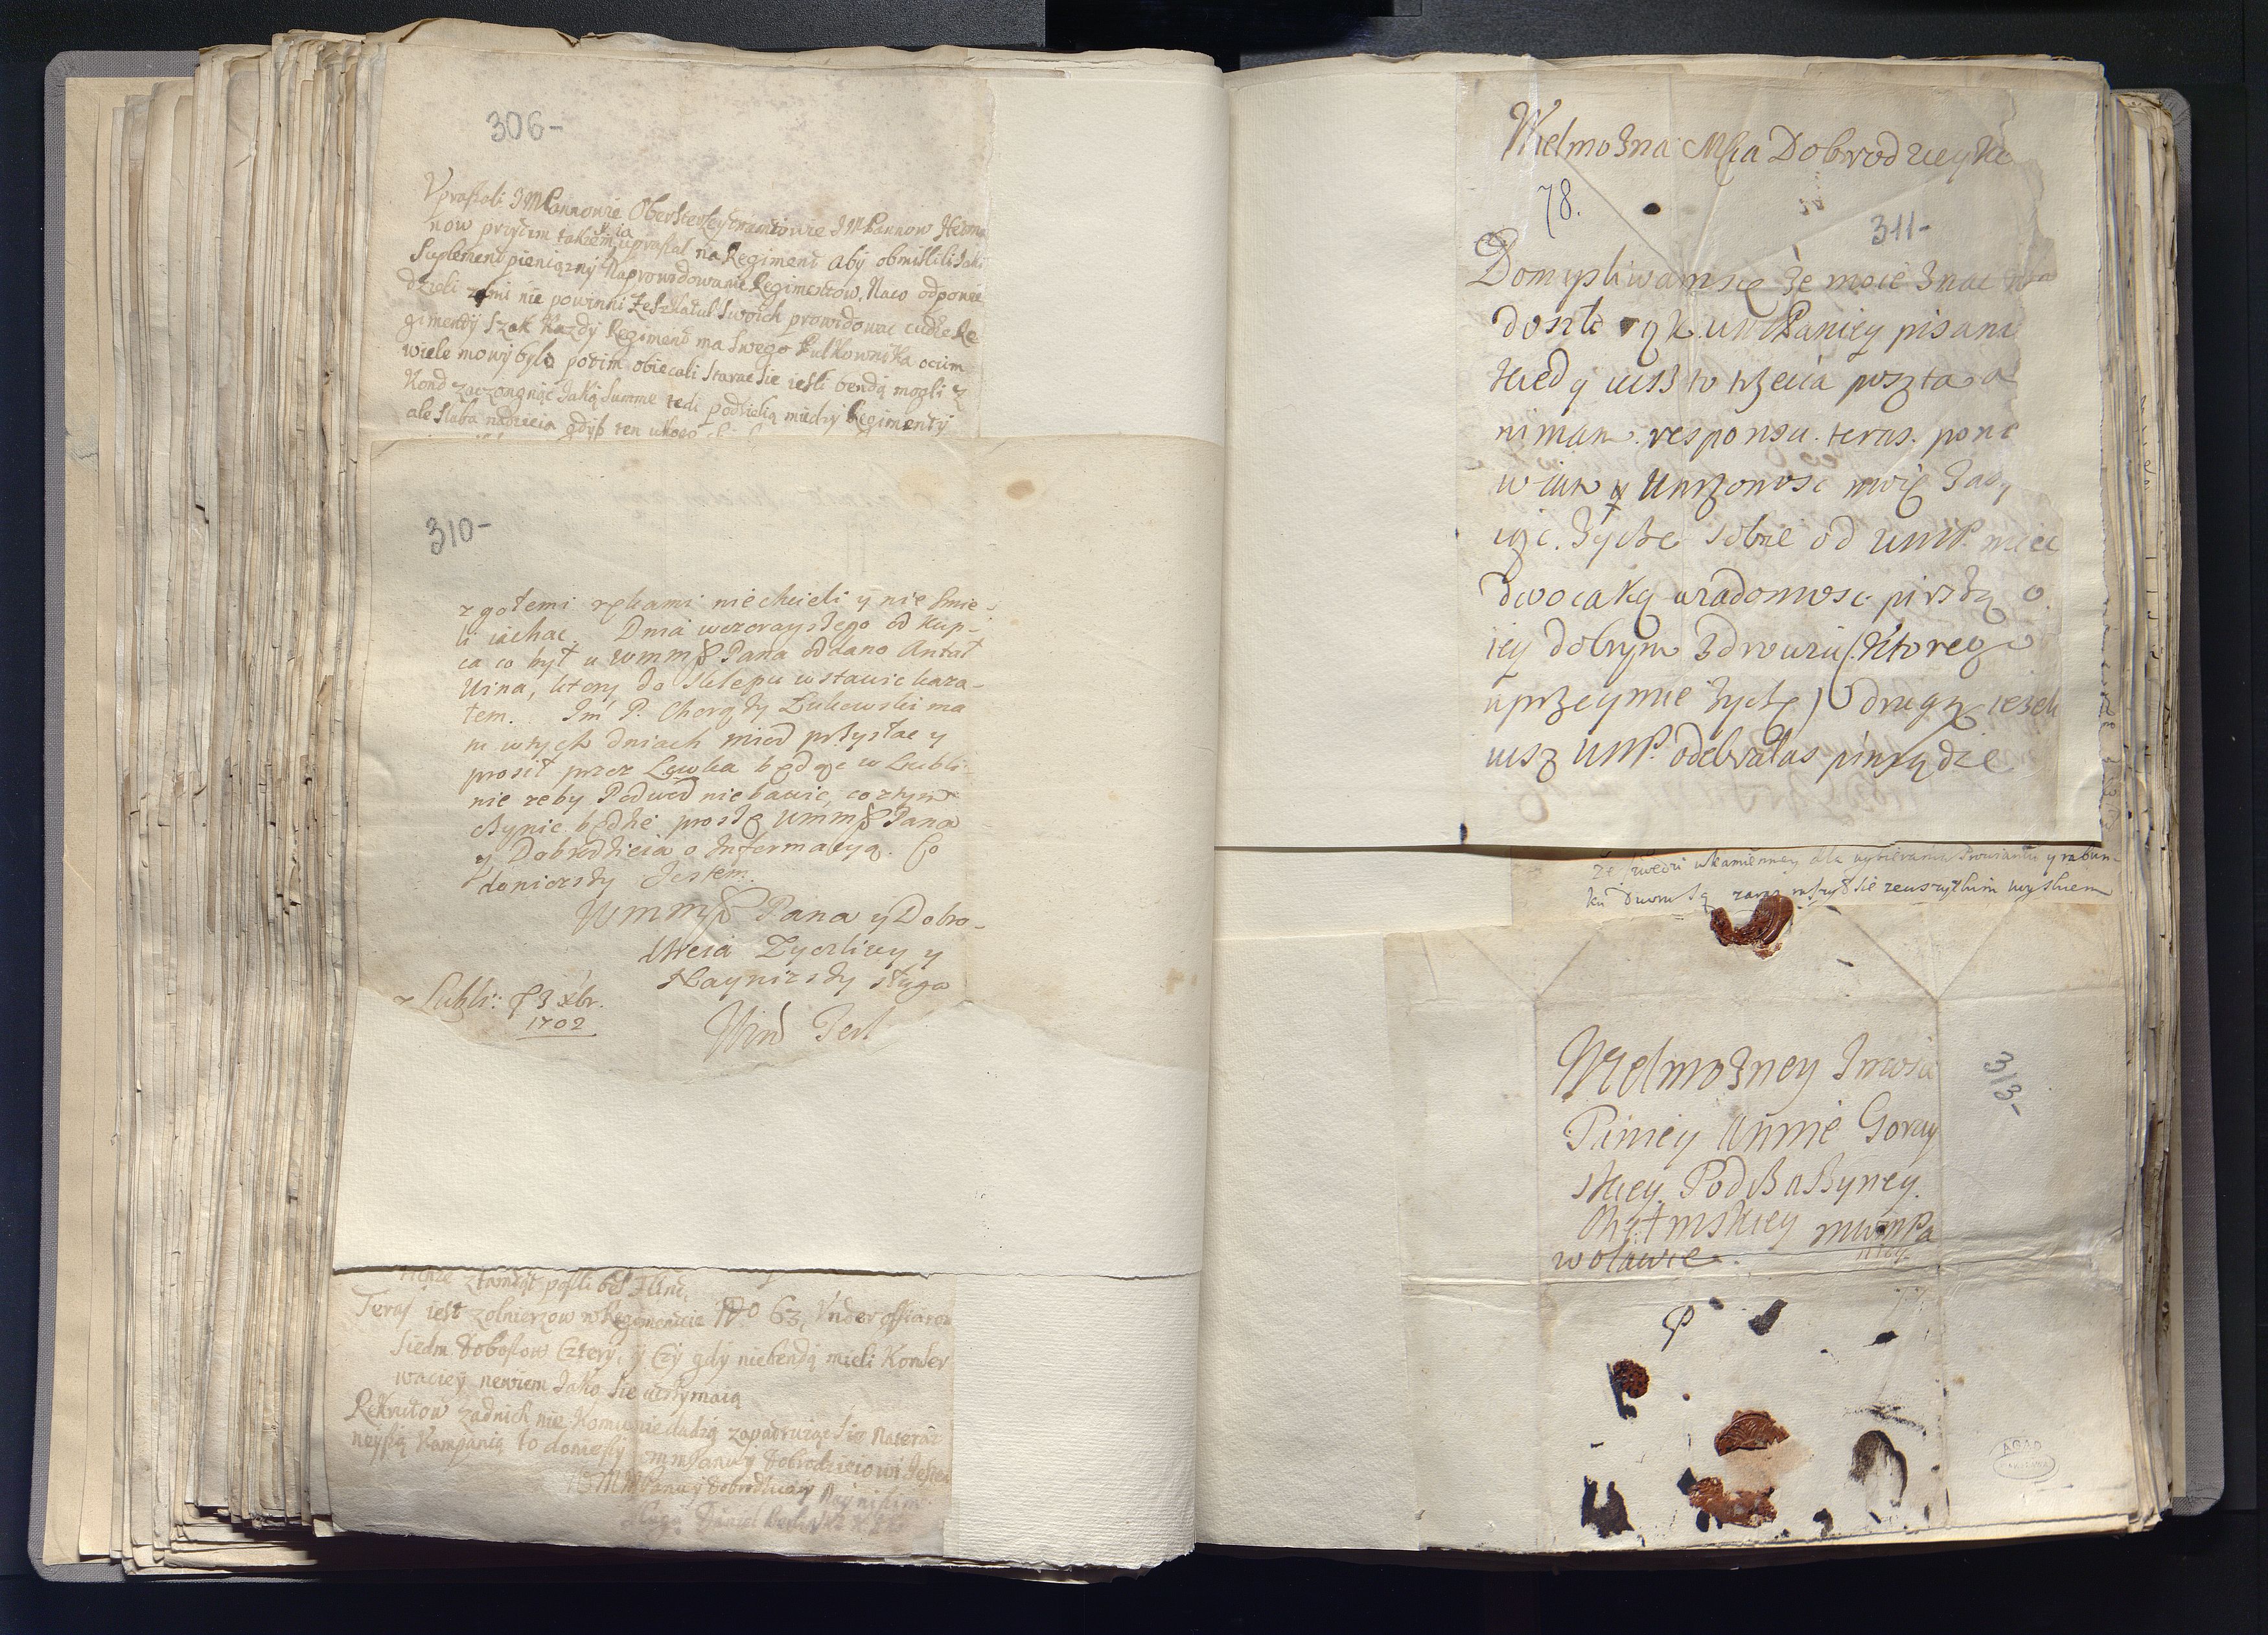 306-
Uprasali JMPannowie Obersterleytnantowie JMPannow Hetma
now przytim takiem ia uprasal na Regiment aby obmislili Jaki
Suplement pieniązny Naprowidowanie Regimentow. Naco odpowie
dzieli nie powinni ze Szkatul Swoich prowidowac cudze Re
gimenty Szak Kazdy Regiment ma Swego Pulkownika ocim
wiele mowy bylo potim obiecali Starac Sie iesli bendą mogli z
kond zaczongnąc Jaką Summe tedi podzielą miedzy Regimenty
ale Slaba nadzieia gdyß ten
310-
z gołemi rękami niechcieli y nie smie-
li iachac. Dnia wczorayszego od kup-
ca co był u wmm Pana oddano Antał
Wina, ktory do sklepu wstawic kaza-
łem. Im P. Chorąży Łukowski ma
tu wtych dniach miod przysłac y
prosił przez Lewka będąc w Lubli
nie zeby Podwod niebawic, co ztym
czynic będzie proszę Umm Pana
y Dobrodzieia o Informacyą. Co
doniozszy Jestem
Wmm Pana y Dobro-
dzieia Zyczliwy y
Nayniższy sługa
z Lubli: 3 xbr.
1702
złamtąt posli bes
Teras iest zolnierzow w Regimencie No 63, Underofficirow
Siedm Doboszow Cztery, y Czy gdy niebendą mieli Konser
waciey newiem Jako Sie utrzymaią
Rekrutow zadnich nie Komu nie dadzą zapatruiąc Sie Nateraz
neyszą Kampanią to doniosszy mmPanu y Dobrodzieiowi Jestem
WMMPanu y Dobrodzieiowi Nayniszim
Sługą Daniel
Wielmożna Mcia Dobrodzieyko
78.
311-
Domysliwamsię że moie znac nie
doszło rąk UMPaniey pisanie
kiedy iusz to trzecia poszta a
nimam responsu. teras. pono
wiam y unizonosc moię
iąc. Życzę sobie od UMP. miec
dwoiaką wiadomosc pirszą o
iey dobrym zdrowiu (ktorego
uprzeymie życzę) drugą ieżeli
iusz UMP. odebrałas piniądze
że szwedzi wkamienney dla wybierania Prowiantu y rabun-
ku dworu są zaraz
Wielmożney Imosci
Paniey Annie Goray
skiey Podczaszyney
Chełmskiey mwmPa
niey
wolawie.
313-
P
AGAD